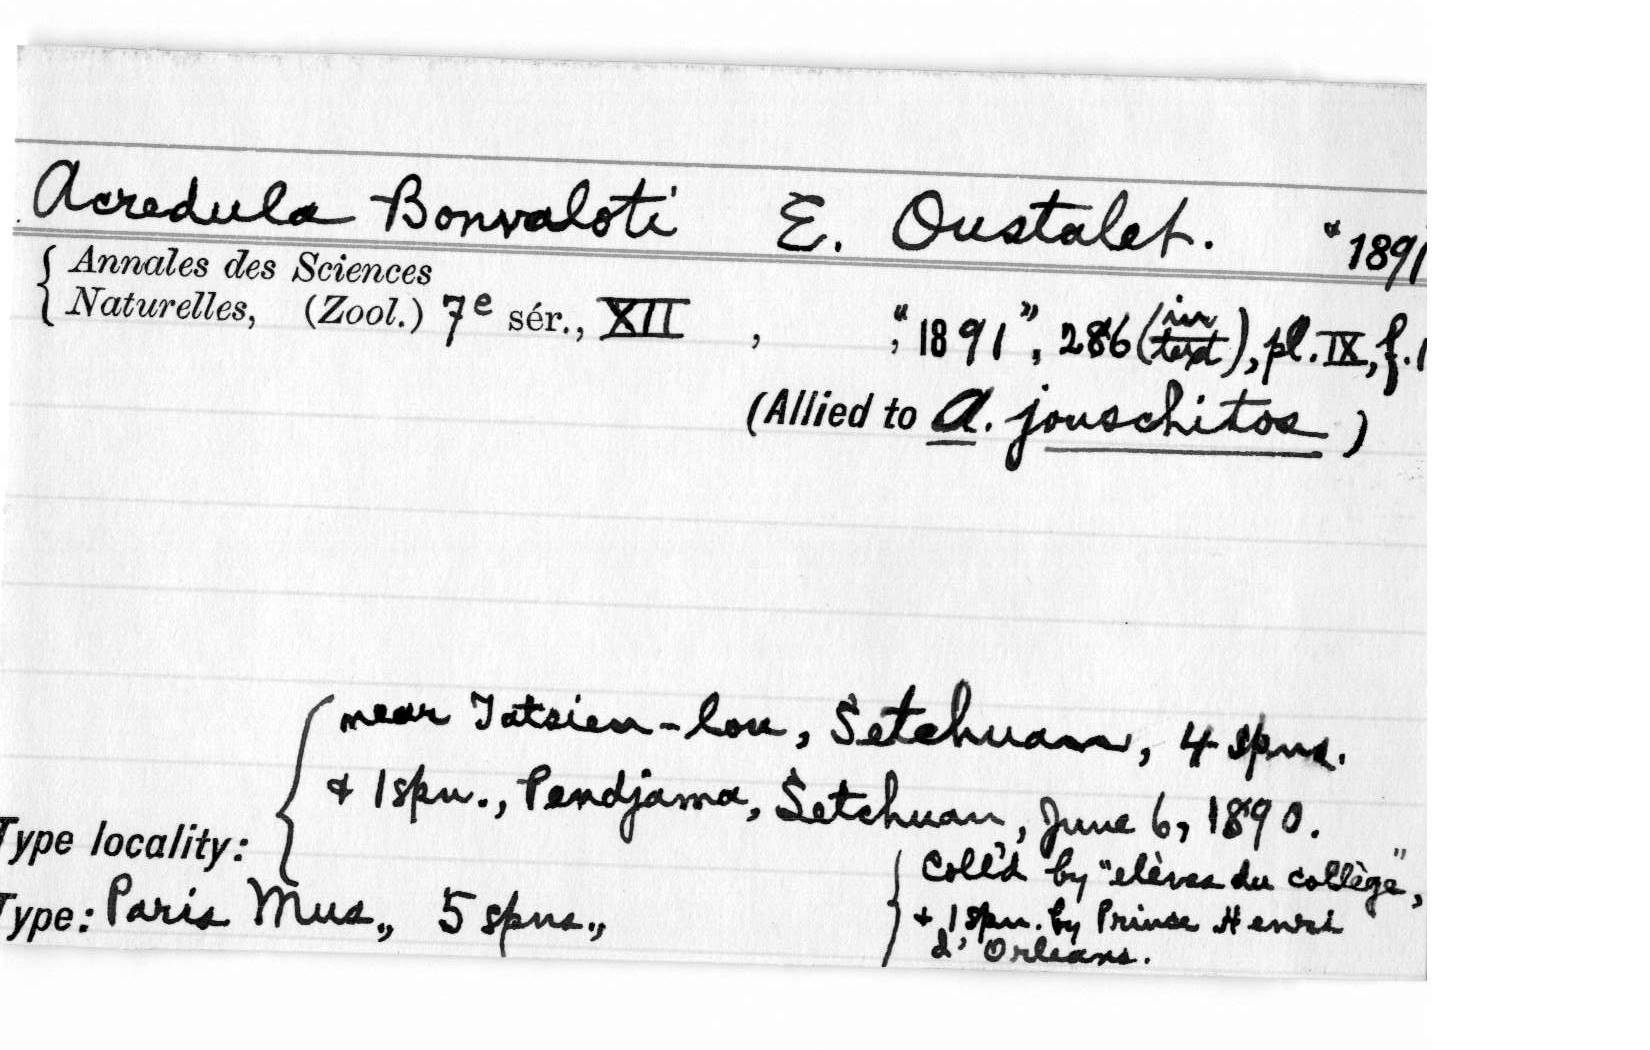 Acredula Bonvaloti E. Oustalet. 1891
Annales des Sciences
Naturelles, (Zool.) 7e sér., XII , ; "1891", 286 (in text), pl. IX, f. 1
(Allied to A. jouschitos)
near Tatsien-lou, Setchuan, 4 spns.
& 1 spn., Pendjama, Setchuan, June 6, 1890.
Type locality:
Type: Paris Mus., 5 spns.,
Coll'd by "elèves du collège",
& 1 spn. by Prince Henri
d'Orleans.